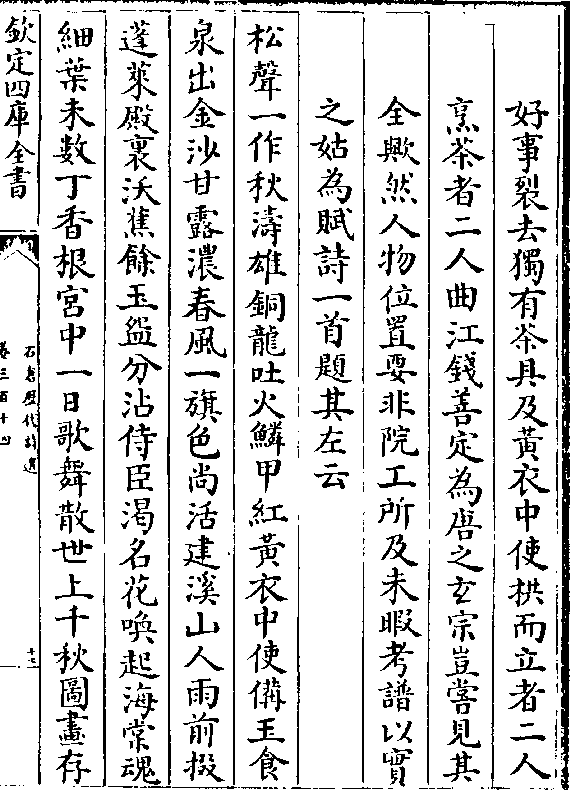 好事裂去獨有茶具及黃衣中使拱而立者二人
烹茶者二人曲江錢善定為唐之玄宗豈嘗見其
全歟然人物位置要非院工所及未暇考譜以實
之姑為賦詩一首題其左云
松聲一作秋濤雄銅龍吐火鱗甲紅黃衣中使偹玉食
泉出金沙甘露濃春風一旗色尚活建溪山人雨前掇
蓬萊殿裏沃焦餘玉盌分沾侍臣渴名花喚起海棠魂
細葉未數丁香根宮中一日歌舞散世上千秋圖畫存
欽定四庫全書
石倉歷代詩選
卷三百十四